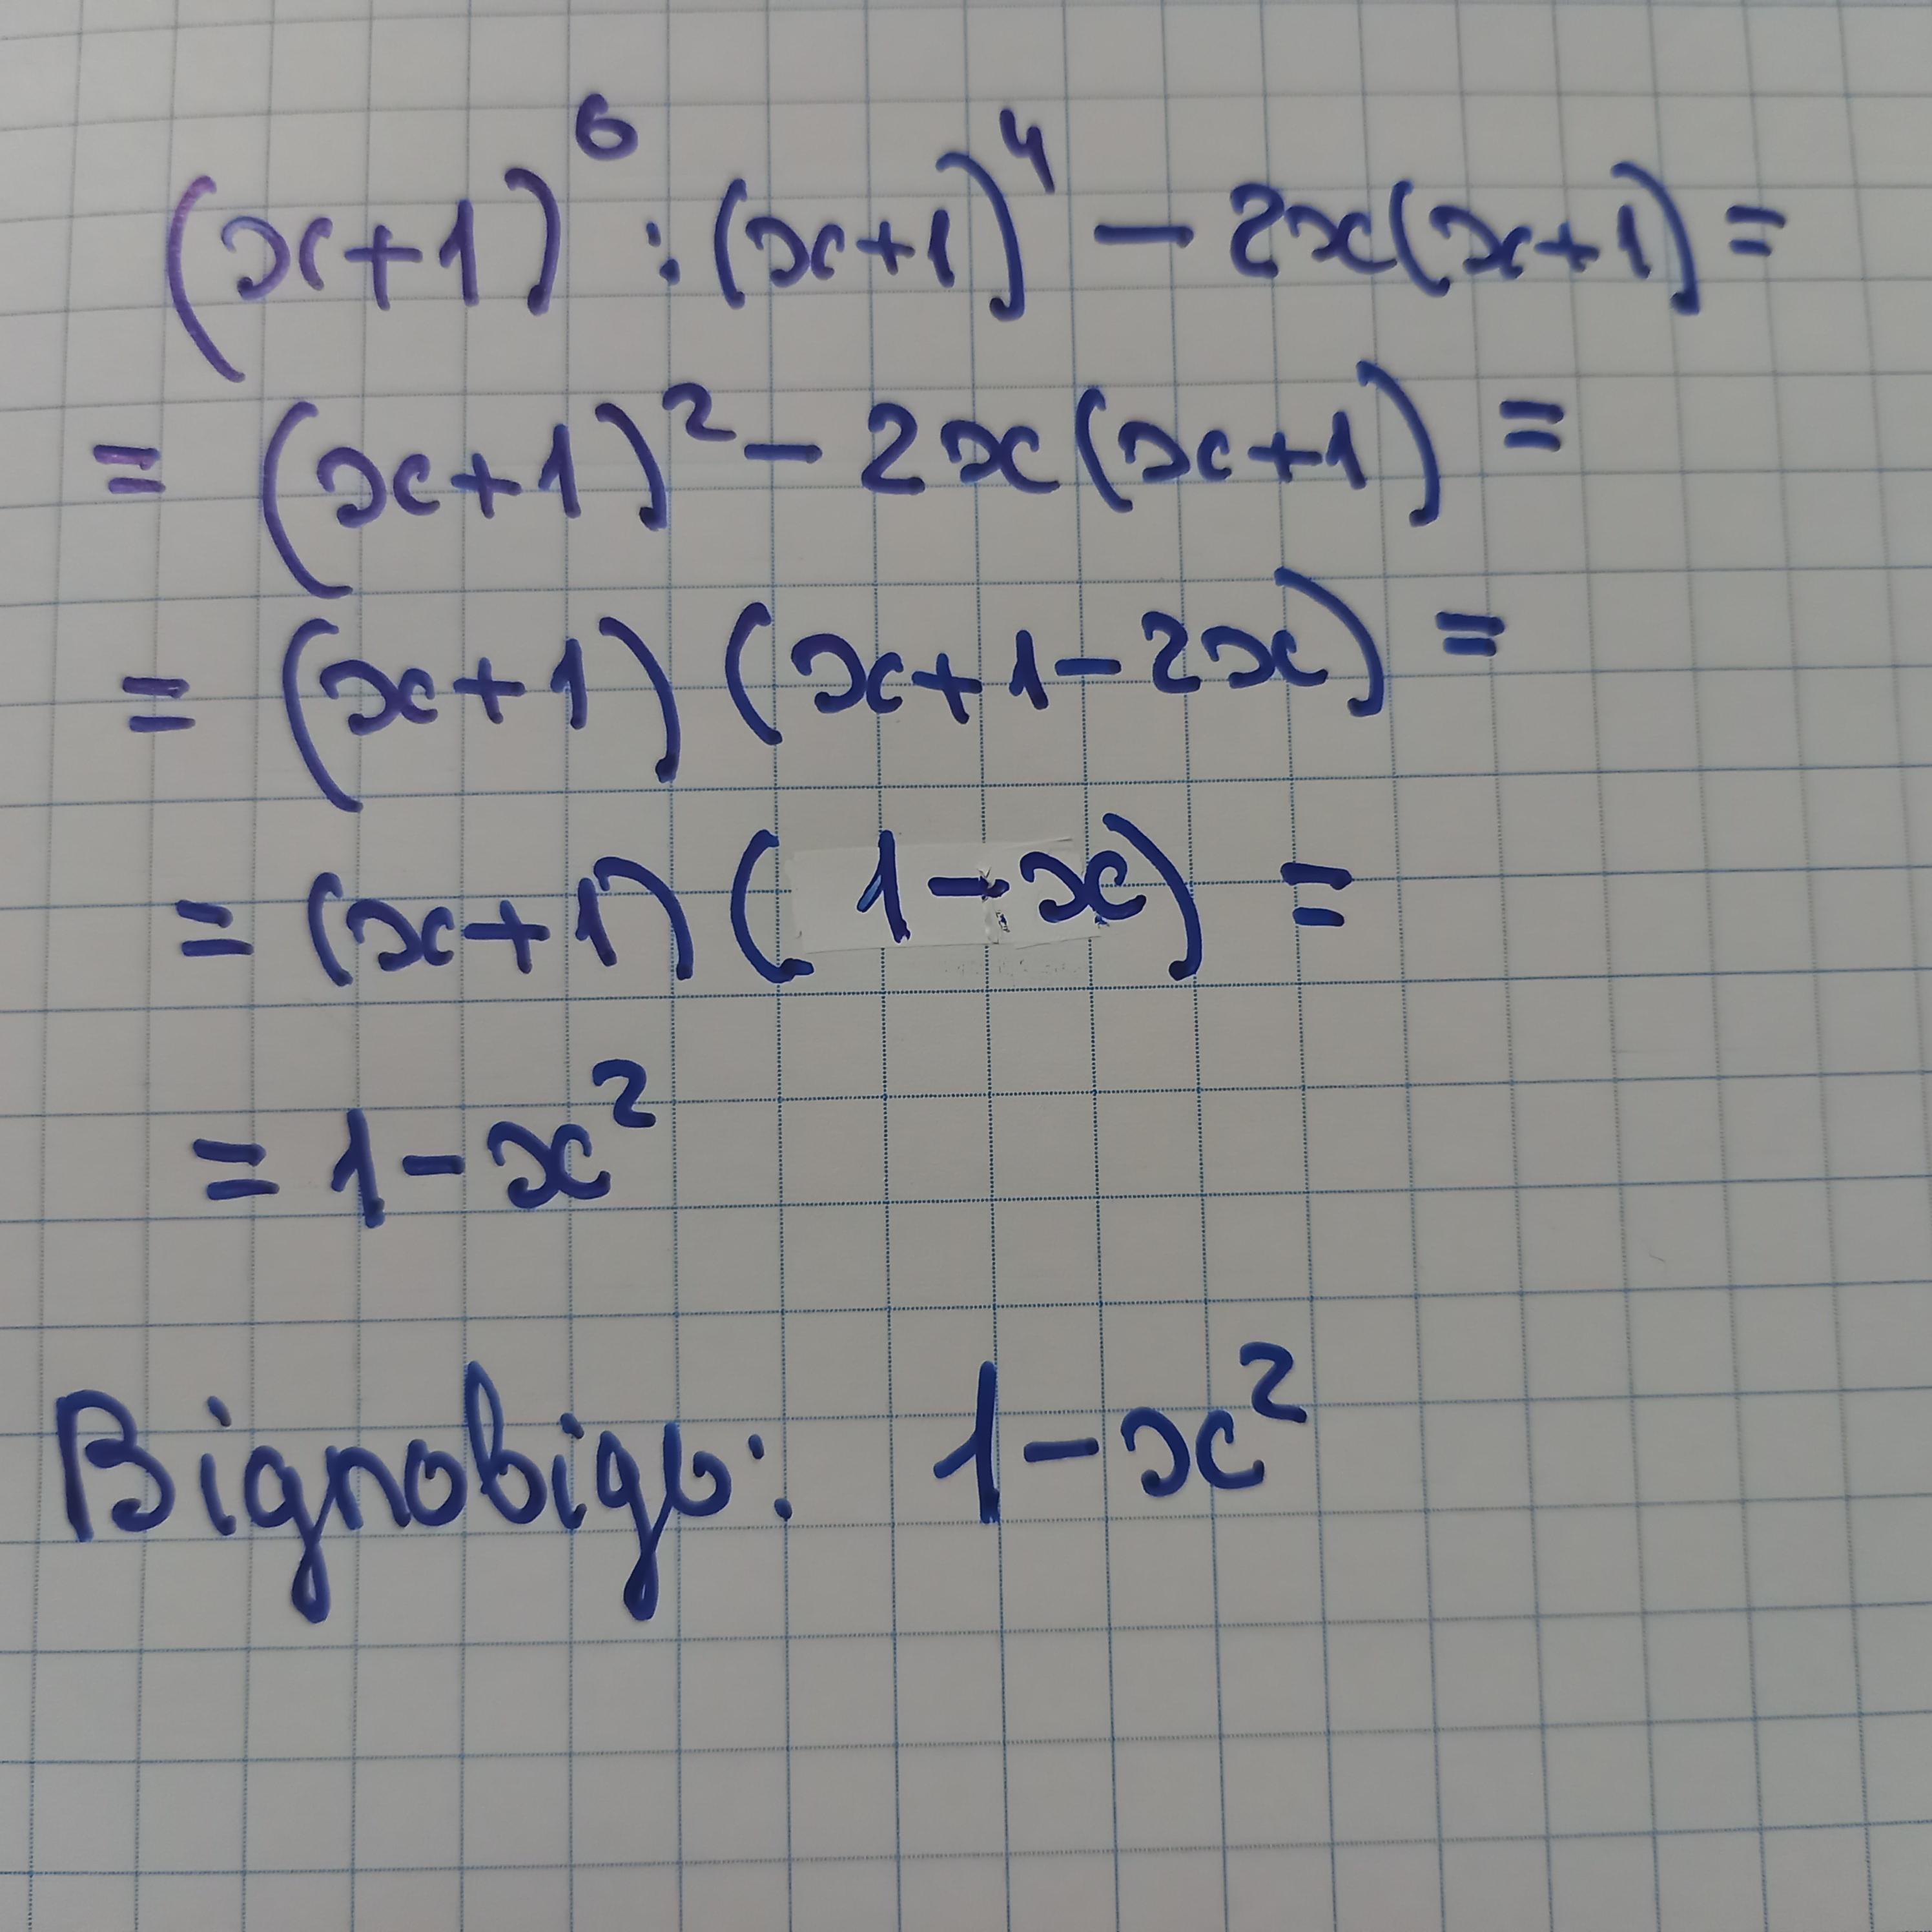 (x+1)⁶ : (x+1)⁴ − 2x(x+1) =
= (x+1)² − 2x(x+1) =
= (x+1)(x+1−2x) =
= (x+1)(1−x) =
= 1−x²
Відповідь: 1−x²